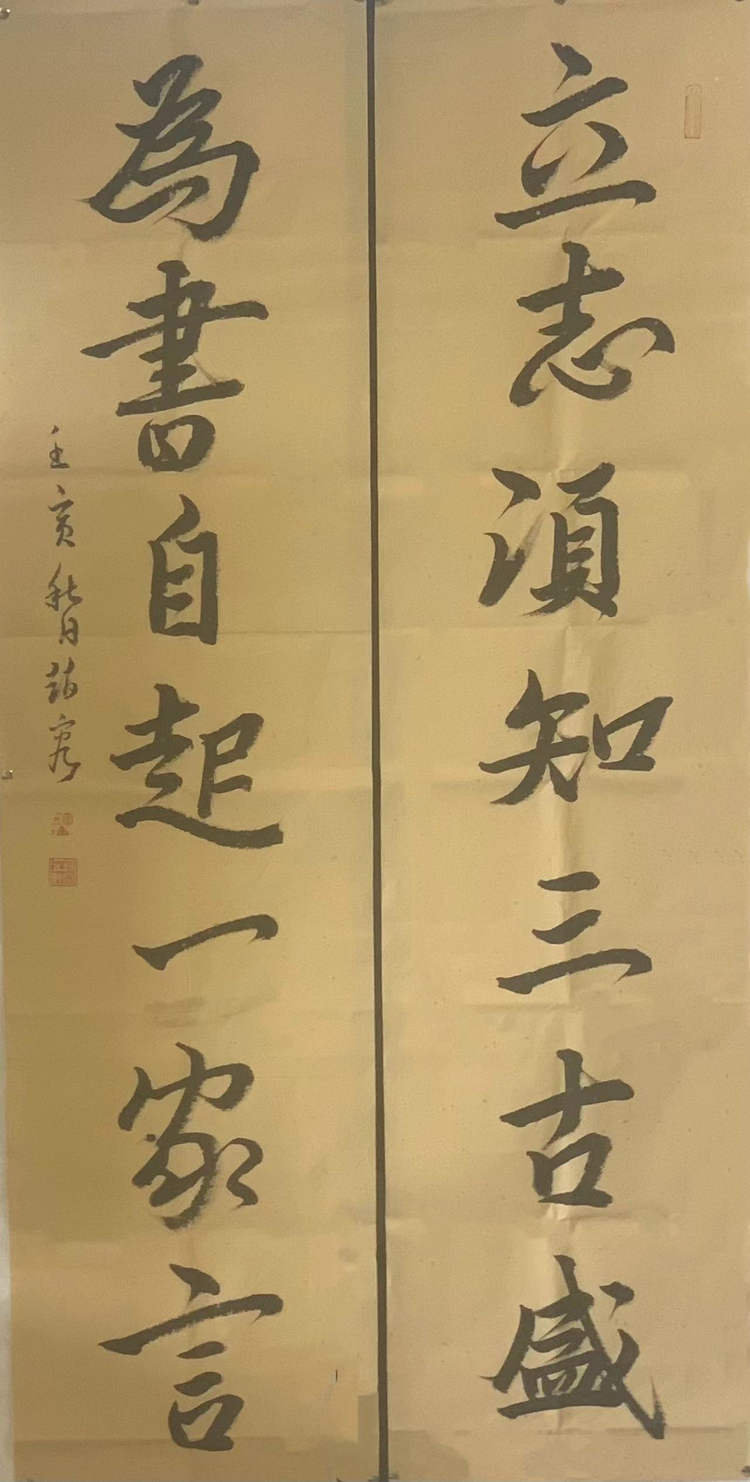 立志須知三古盛
為書自起一家言